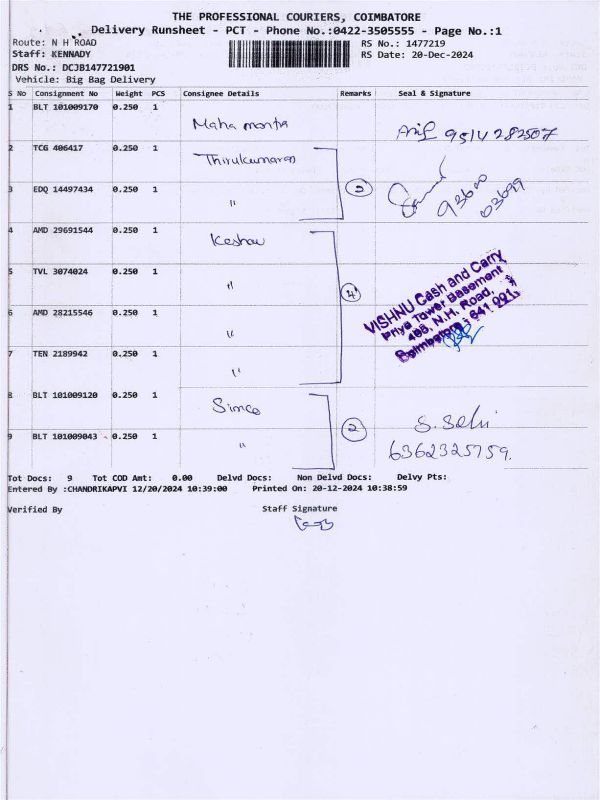 THE PROFESSIONAL COURIERS, COIMBATORE
Delivery Runsheet - PCT - Phone No.:0422-3505555 - Page No.:1
Route: N H ROAD
RS No.: 1477219
Staff: KENNADY
RS Date: 20-Dec-2024
DRS No.: DCJB147721901
Vehicle: Big Bag Delivery
S No Consignment No Weight PCS Consignee Details Remarks Seal & Signature
1 BLT 101009170 0.250 1 Maha 9514282507
2 TCG 406417 0.250 1 Thirukumaran
3 EDQ 14497434 0.250 1 " 2 93600 03699
4 AMD 29691544 0.250 1 Keshav
5 TVL 3074024 0.250 1 " 4
VISHNU Cash and Carry
Priya Tower Basement
N.H. Road,
Coimbatore - 641 001.
6 AMD 28215546 0.250 1 "
7 TEN 2189942 0.250 1 "
8 BLT 101009120 0.250 1 Simco
9 BLT 101009043 0.250 1 " 2 S. Selvi
6362325759.
Tot Docs: 9 Tot COD Amt: 0.00 Delvd Docs: Non Delvd Docs: Delvy Pts:
Entered By :CHANDRIKAPVI 12/20/2024 10:39:00 Printed On: 20-12-2024 10:38:59
Verified By Staff Signature